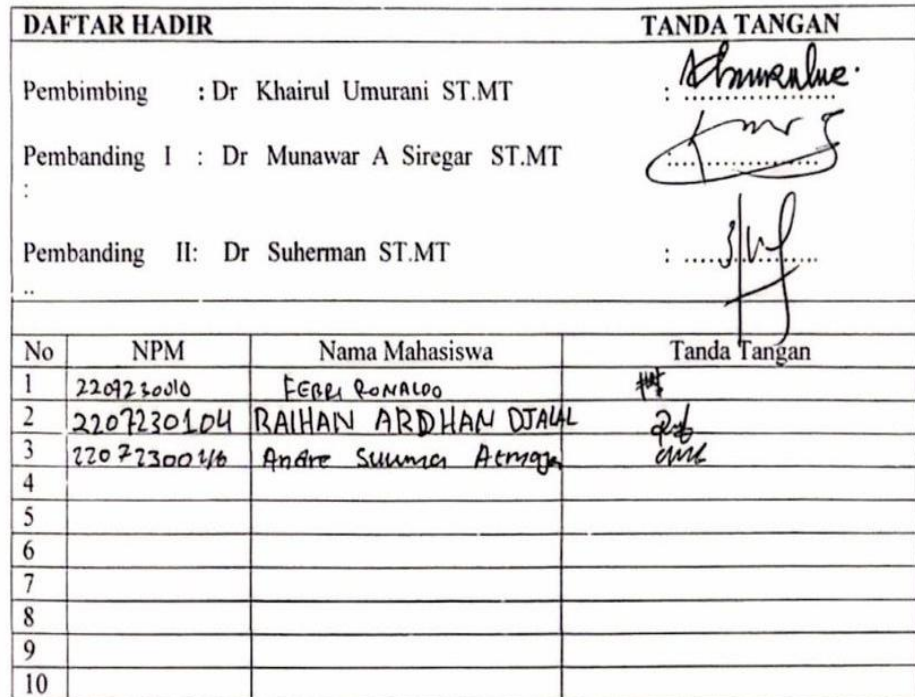 DAFTAR HADIR TANDA TANGAN
Pembimbing : Dr Khairul Umurani ST.MT : ................
Pembanding I : Dr Munawar A Siregar ST.MT ................
:
Pembanding II: Dr Suherman ST.MT : ................
..
No NPM Nama Mahasiswa Tanda Tangan
1 2207230010 FEBRI RONALDO
2 2207230104 RAIHAN ARDHAN DJALAL
3 Andre
4
5
6
7
8
9
10